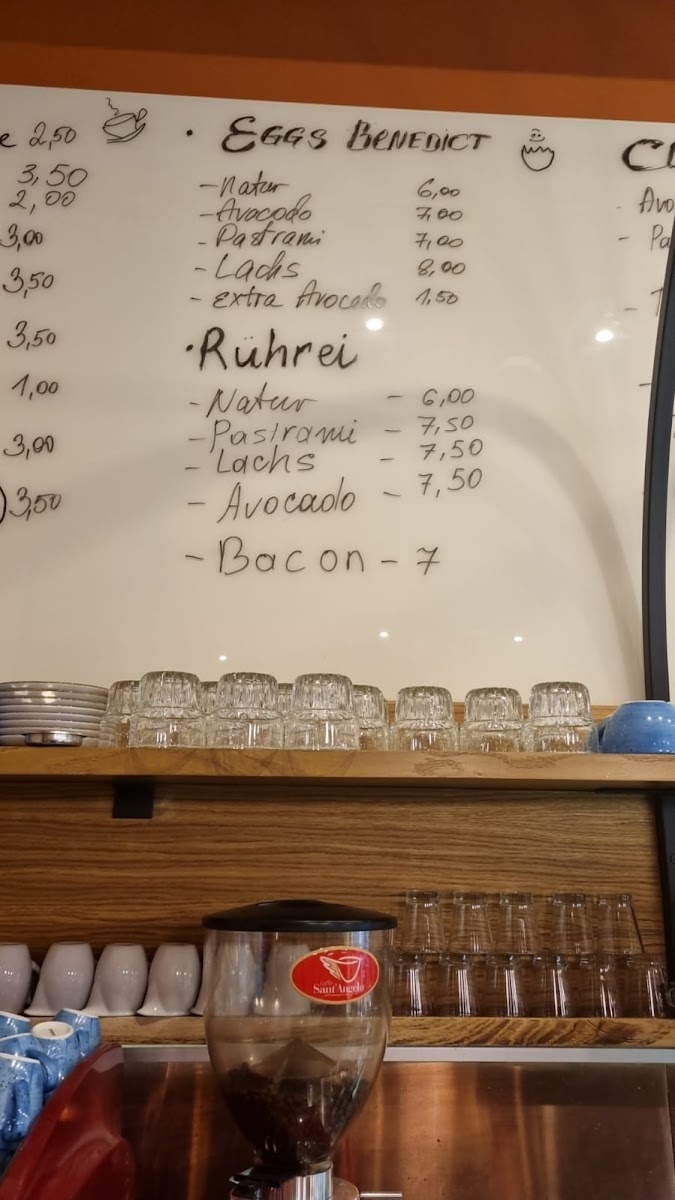 e 2,50
3,50
2,00
3,00
3,50
3,50
1,00
3,00
3,50
· EGGS BENEDICT
- Natur 6,00
- Avocodo 7,00
- Pastrami 7,00
- Lachs 8,00
- extra Avocado 1,50
· Rührei
- Natur - 6,00
- Pastrami - 7,50
- Lachs - 7,50
- Avocado - 7,50
- Bacon - 7
Avo
- Pa
Sant'Angelo